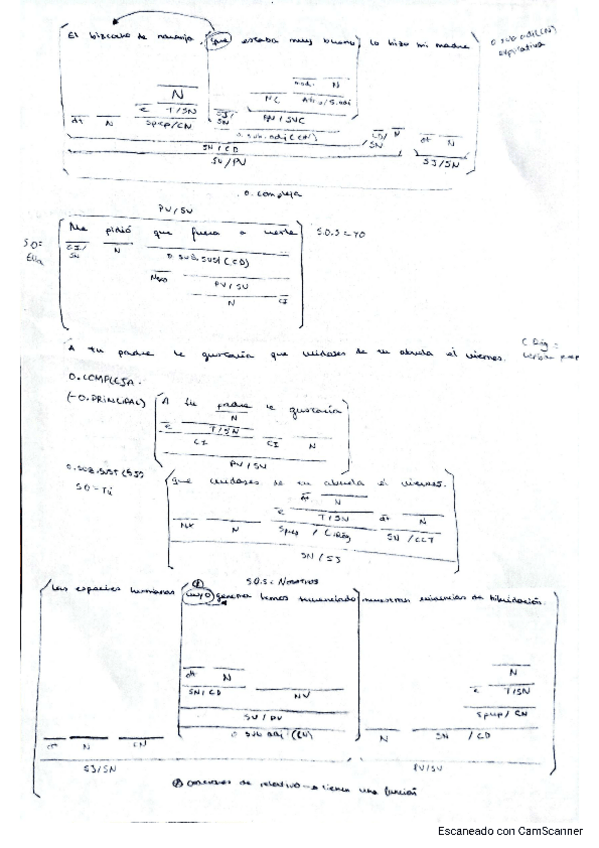 El bizcocho de naranja, que estaba muy bueno, lo hizo mi madre
O. sub. adj. (CN) explicativa
mod. N
N NC Atrio/S.adj
E T/SN SJ/SN PN/SVC CD/SN N
dt N Sprep/CN O. sub. adj (CN) dt N
SN/CD SJ/SN
SV/PV
O. compleja
PV/SV
Me pidió que fuera a verle
S.O.S = YO
SO: Ella
CI/SN N O. sub. sust (CD)
Nexo PV/SV
N CI
A tu padre le gustaría que cuidases de tu abuela el viernes.
C Rég:
O. COMPLEJA.
(-O. PRINCIPAL) A tu padre le gustaría
N
E T/SN
CI CI N
PV/SV
O. SUB. SUST (SJ)
SO - Tú
que cuidases de tu abuela el viernes.
dt N
E T/SN dt N
Nx N Sprep / C. Rég SN / CCT
SN / SJ
S.O.S: Nosotros
Las especies humanas cuyo genoma hemos secuenciado muestran evidencias de hibridación.
dt N N
SN/CD NV E T/SN
SV / PV Sprep/ CN
dt N CN O sub adj (CN) N SN / CD
SJ/SN PV/SV
oraciones de relativo → tienen una función
Escaneado con CamScanner